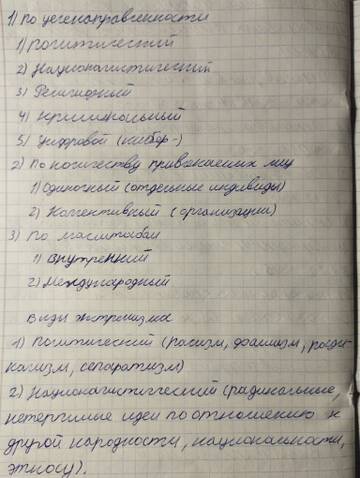 1) По целенаправленности
1) Политический
2) Националистический
3) Религиозный
4) Криминальный
5) Цифровой (кибер-)
2) По количеству привлекаемых лиц
1) Одиночный (отдельные индивиды)
2) Коллективный (организации)
3) По масштабам
1) Внутренний
2) Международный
Виды экстремизма
1) Политический (расизм, фашизм, ради-
кализм, сепаратизм)
2) Националистический (радикальные,
нетерпимые идеи по отношению к
другой народности, национальности,
этносу).